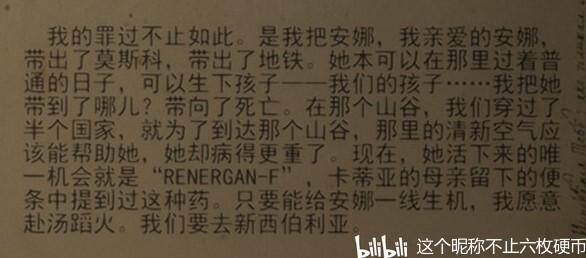 我的罪过不止如此。是我把安娜，我亲爱的安娜，
带出了莫斯科，带出了地铁。她本可以在那里过着普
通的日子，可以生下孩子——我们的孩子……我把她
带到了哪儿？带向了死亡。在那个山谷，我们穿过了
半个国家，就为了到达那个山谷，那里的清新空气应
该能帮助她，她却病得更重了。现在，她活下来的唯
一机会就是“RENERGAN-F”，卡蒂亚的母亲留下的便
条中提到过这种药。只要能给安娜一线生机，我愿意
赴汤蹈火。我们要去新西伯利亚。
bilibili 这个昵称不止六枚硬币